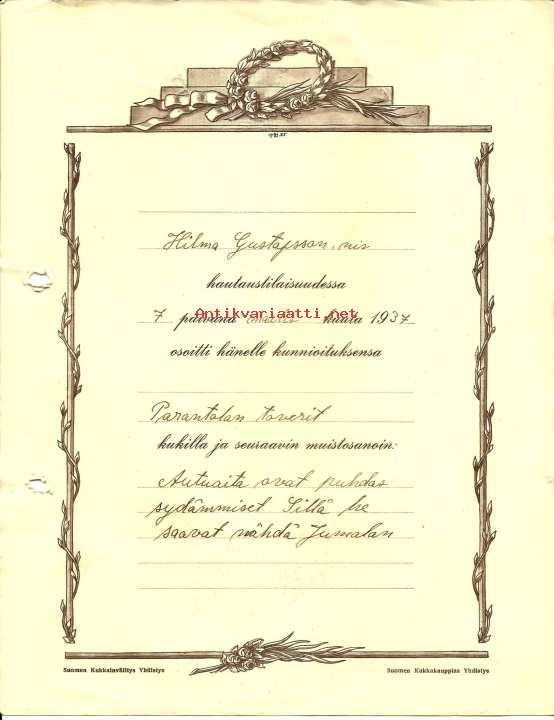 Hilma Gustafsson, nin
hautaustilaisuudessa
7 päivänä kuuta 1937
Antikvariaatti.net
osoitti hänelle kunnioituksensa
Parantolan toverit
kukilla ja seuraavin muistosanoin:
Autuaita ovat puhdas
sydämmiset Sillä he
saavat nähdä Jumalan
Suomen Kukkainvälitys Yhdistys
Suomen Kukkakauppias Yhdistys